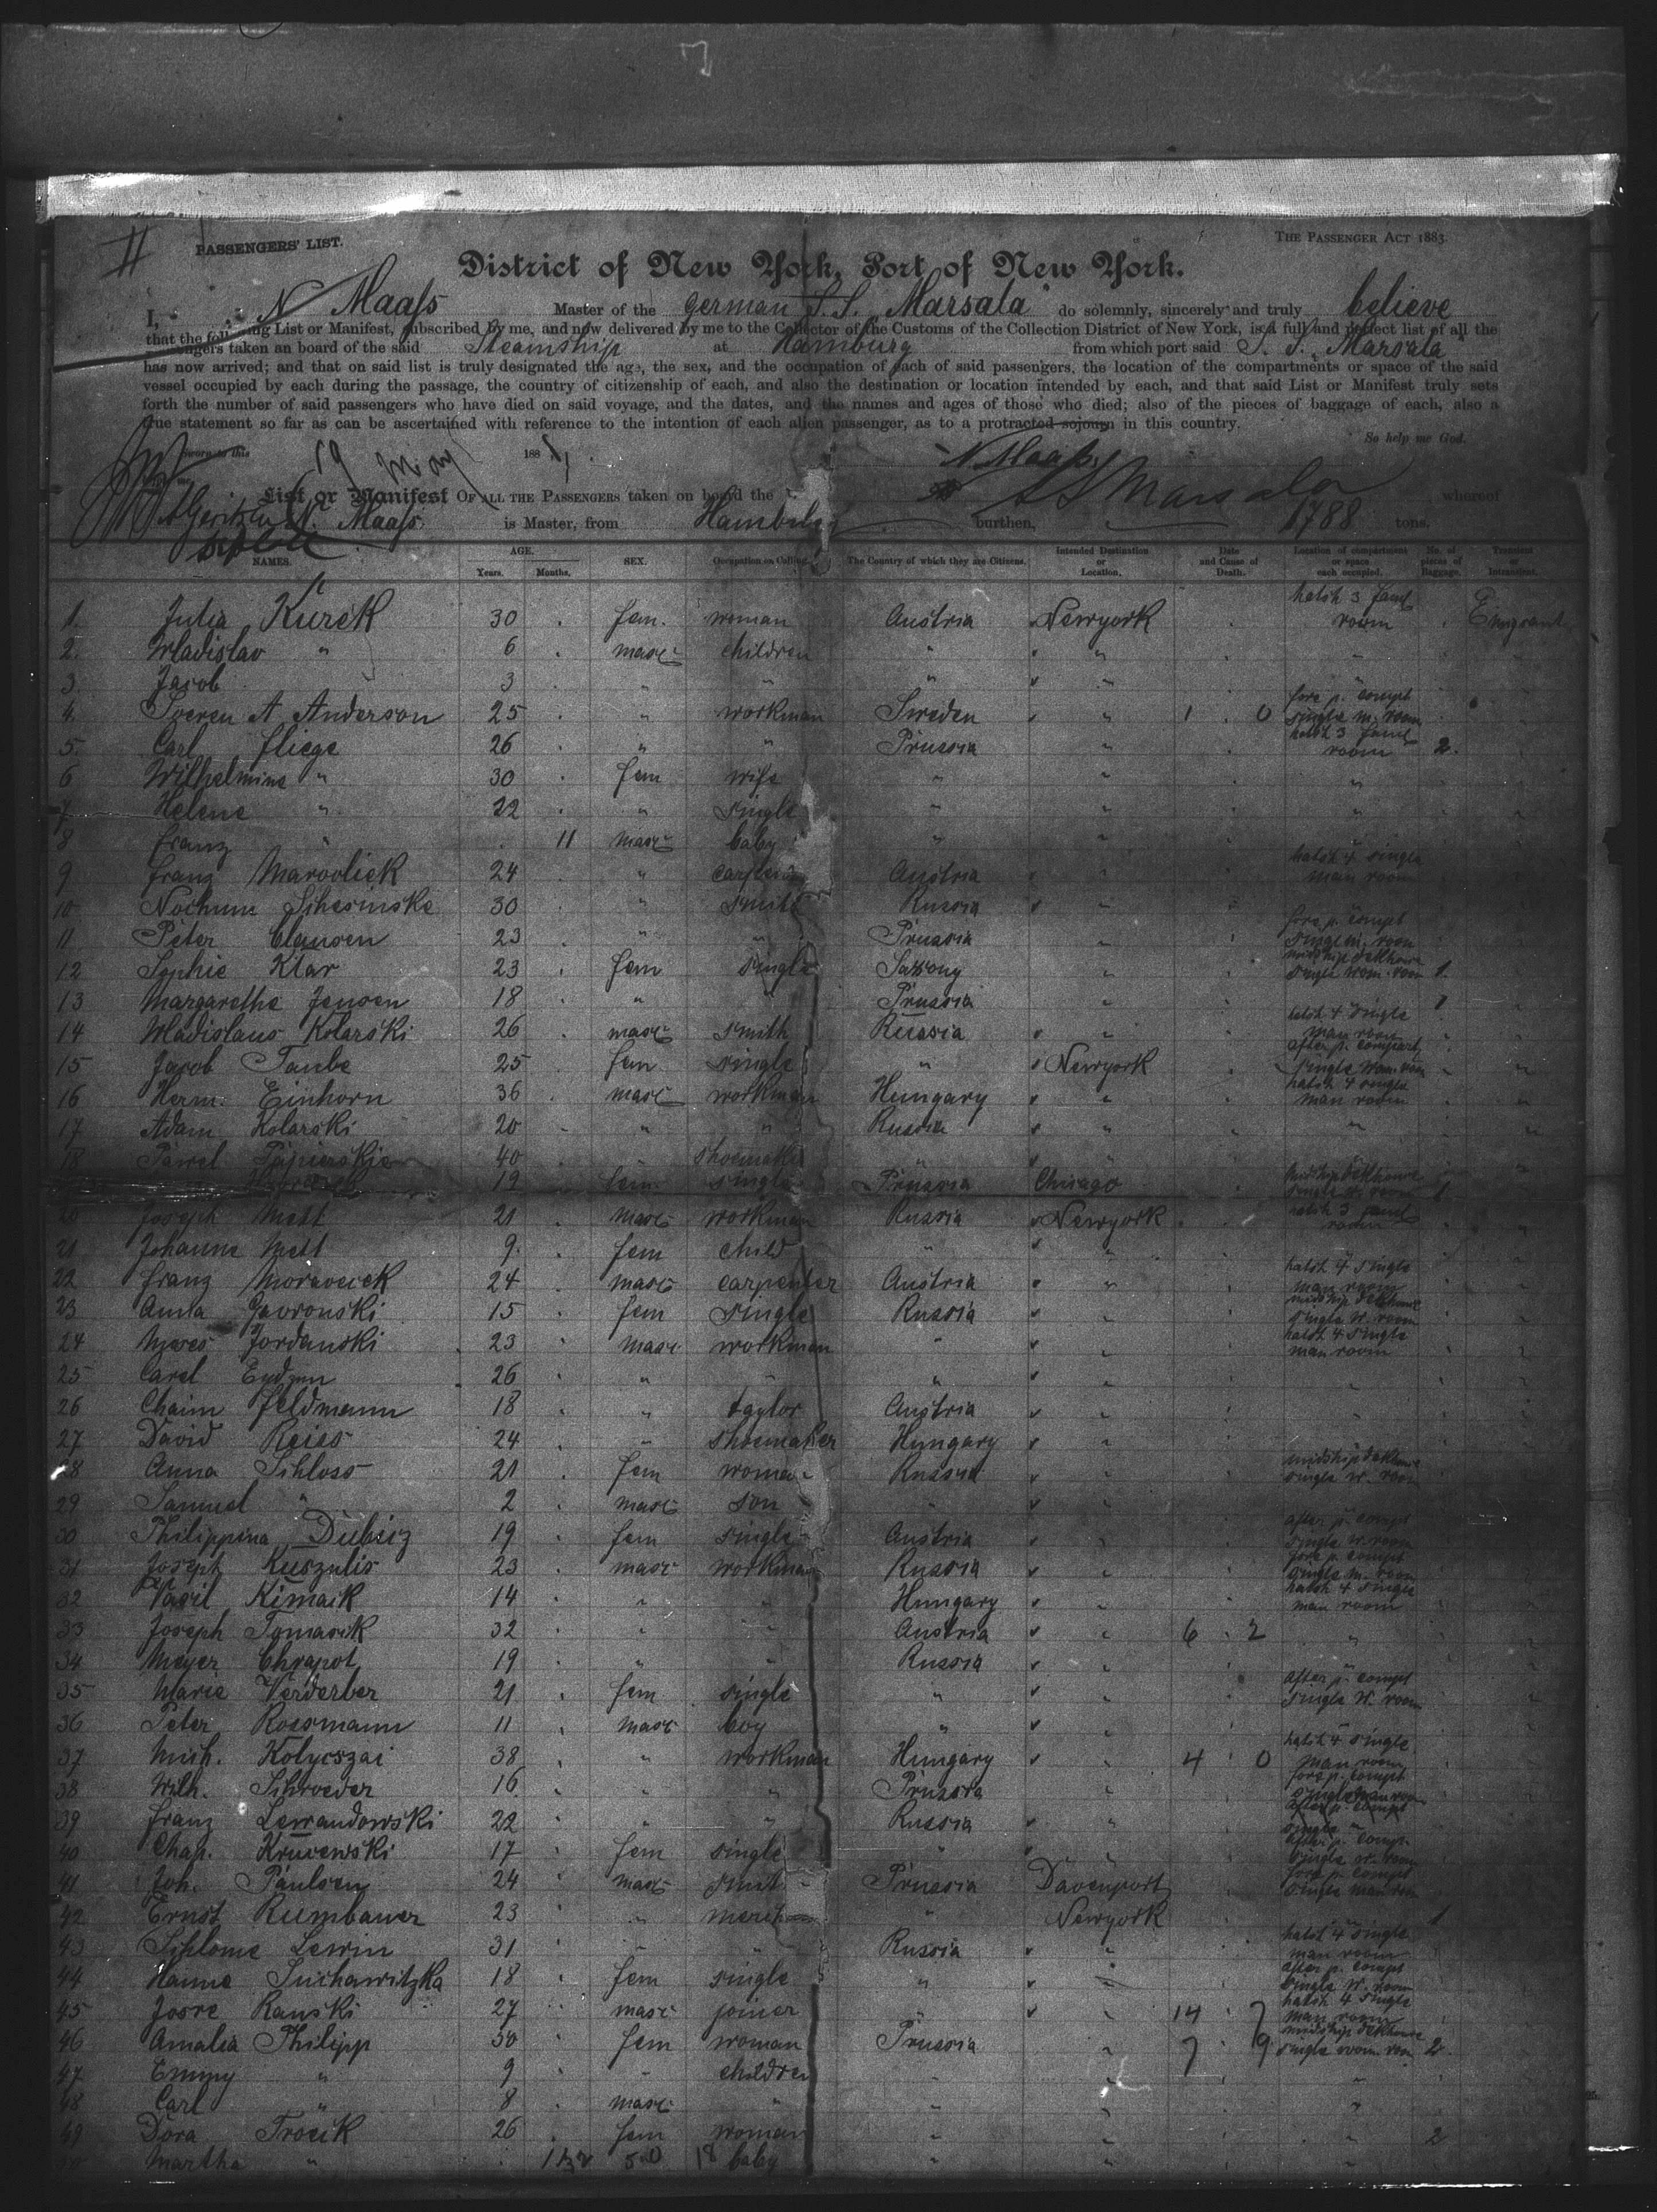 II PASSENGERS' LIST. THE PASSENGER ACT 1883.
District of New York, Port of New York.
I, N Maass Master of the german S.S. "Marsala" do solemnly, sincerely and truly believe
that the following List or Manifest, subscribed by me, and now delivered by me to the Collector of the Customs of the Collection District of New York, is a full and perfect list of all the
passengers taken an board of the said Steamship at Hamburg from which port said S. S. "Marsala"
has now arrived; and that on said list is truly designated the age, the sex, and the occupation of each of said passengers, the location of the compartments or space of the said
vessel occupied by each during the passage, the country of citizenship of each, and also the destination or location intended by each, and that said List or Manifest truly sets
forth the number of said passengers who have died on said voyage, and the dates, and the names and ages of those who died; also of the pieces of baggage of each, also a
true statement so far as can be ascertained with reference to the intention of each alien passenger, as to a protracted sojourn in this country.
So help me God.
Sworn to this 19 May 188 N Maass
List or Manifest OF ALL THE PASSENGERS taken on board the S S Marsala whereof
N. Maass is Master, from Hamburg burthen, 1788 tons.
NAMES. AGE. Years. Months. SEX. Occupation or Calling. The Country of which they are Citizens. Intended Destination or Location. Date and Cause of Death. Location of compartment or space each occupied. No. of pieces of Baggage. Transient or Intransient.
1. Julia Kurek 30 fem. woman Austria Newyork hatch 3 famil room Emigrant
2. Wladislav " 6 masc children " " "
3. Jacob 3 " " " "
4. Soeren A Anderson 25 " workman Sweden " 1 0 fore p. compt single m. room
5. Carl fliege 26 " " Prussia " hatch 3 famil room 2.
6 Wilhelmine " 30 fem wife " " "
7 Helene " 22 " single " " "
8 franz " 11 masc baby " "
9 franz Marvolick 24 " carpenter Austria " hatch 4 single man room
10 Nochum Schesinske 30 " smith Russia "
11 Peter Clausen 23 " " Prussia " fore p. compt single m. room
12 Sophie Klar 23 fem single Saxony " midship dekhouse single wom. room 1.
13 Margarethe Jensen 18 " " Prussia " 1
14 Wladislaus Kolarski 26 masc smith Russia " hatch 4 single man room
15 Jacob Taube 25 fem single " Newyork after p. compart single wom. room
16 Herm. Einhorn 36 masc workman Hungary " hatch 4 single man room
17 Adam Kolarski 20 " " Russia " "
18 Pawel Papierskie 40 " shoemaker " "
19 fem single Prussia Chicago midship dekhouse single w. room 1
20 Joseph Mett 21 masc workman Russia Newyork hatch 3 famil room
21 Johanne Mett 9. fem child " "
22 franz Moravecek 24 masc carpenter Austria " hatch 4 single man room
23 Anna Gavronski 15 fem single Russia " midship dekhouse single w. room
24 Mores Jordanski 23 masc workman " " hatch 4 single man room
25 Carel 26 " " " "
26 Chaim feldmann 18 " taylor Austria " "
27 David Reiss 24 " shoemaker Hungary "
28 Anna Schloss 21 fem woman Russia " midship dekhouse single w. room
29 Samuel " 2 masc son " "
30 Philippina Dubicz 19 fem single Austria " after p. compt single w. room
31 Joseph Kuszulis 23 masc workman Russia " fore p. compt single m. room
32 Vasil Kimaik 14 " " Hungary " hatch 4 single man room
33 Joseph Tomasik 32 " " Austria " 6 2 "
34 Meyer Chrapot 19 " " Russia " "
35 Marie Verderber 21 fem single " " after p. compt single w. room
36 Peter Rossmann 11 masc boy "
37 Mich. Kolycszai 38 " workman Hungary " 4 0 hatch 4 single man room
38 Wilh. Schroeder 16 " " Prussia fore p. compt single man room
39 franz Lewandowski 22 " " Russia " after p. compt single "
40 Chap. Kruvewski 17 fem single " " after p. comp. single w. room
41 Joh. Paulsen 24 masc smith Prussia Davenport fore p. compt single man room
42 Ernst Rumbauer 23 " merch " Newyork " 1
43 Schlome Lewin 31 " " Russia " hatch 4 single man room
44 Hanne Suchawitzka 18 fem single " " after p. compt single w. room
45 Josre Ranski 27 masc joiner " " 14 7 hatch 4 single man room
46 Amalia Philipp 30 fem woman Prussia " 7 9 midship dekhouse single wom. room 2.
47 Emmy " 9 " children " " "
48 Carl " 8 masc " " " "
49 Dora Trocik 26 fem woman " " " 2
50 Martha " 18 baby " " "